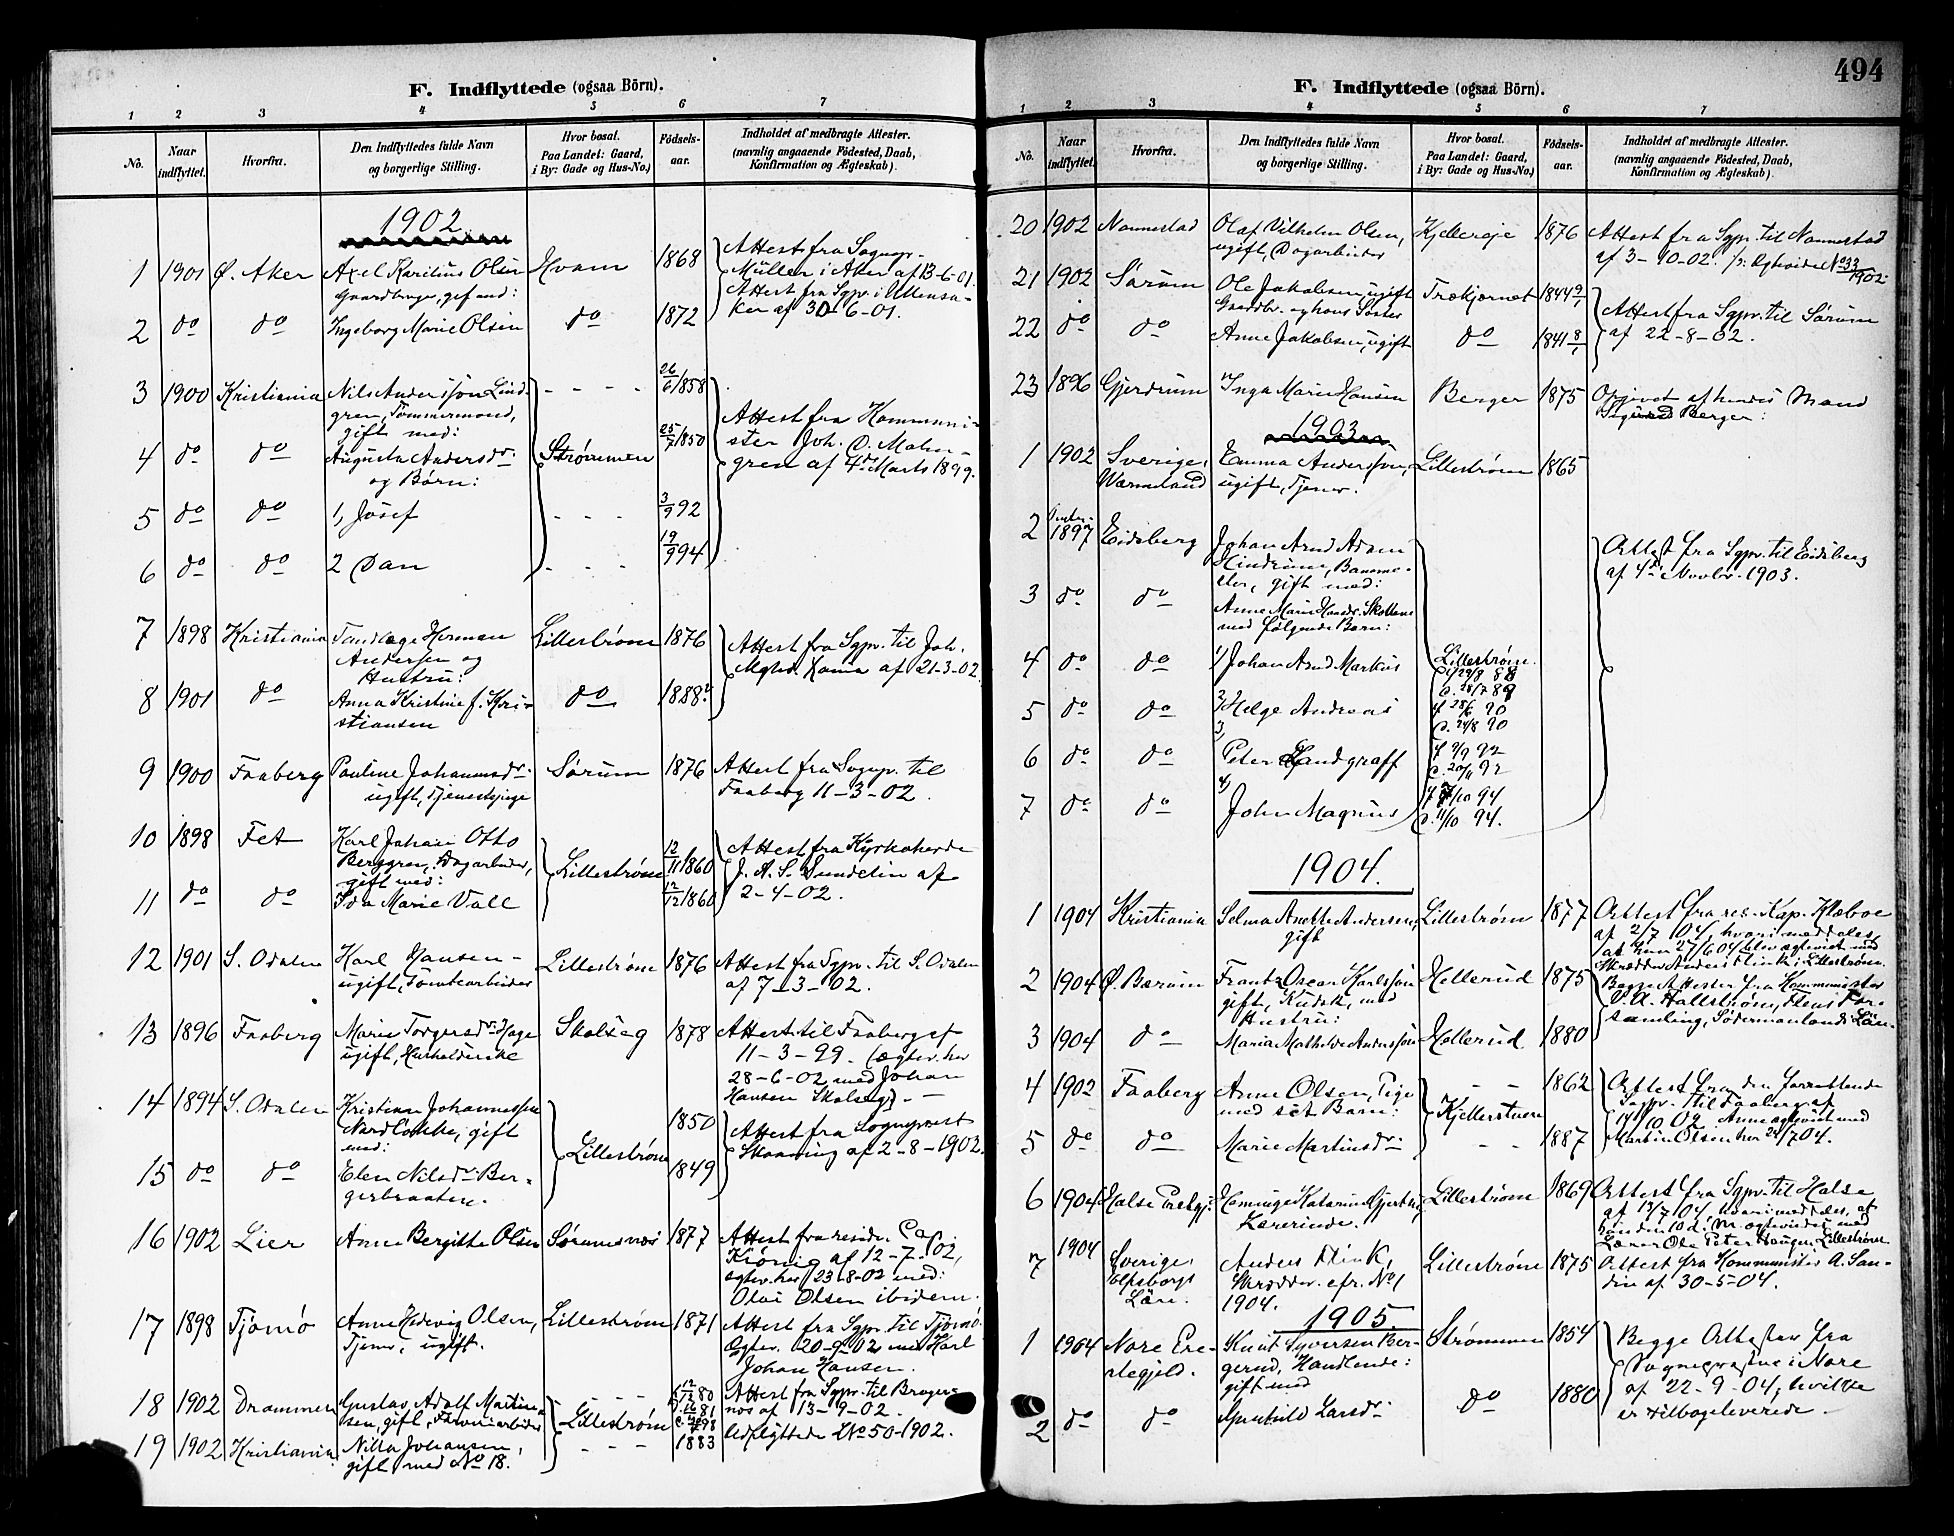 494
F. Indflyttede (ogsaa Börn).
1 2 3 4 5 6 7
No.
Naar indflyttet.
Hvorfra.
Den Indflyttedes fulde Navn
og borgerlige Stilling.
Hvor bosat.
Paa Landet: Gaard,
i By: Gade og Hus-No.)
Födsels-
aar.
Indholdet af medbragte Attester.
(navnlig angaaende Födested, Daab,
Konfirmation og Ægteskab).
1902
1 1901 Ø. Aker Axel Olsen Hvam 1868 Attest fra Sognepr.
Gaardbruger, gift med: Müller i Aker af 13-6-01.
Attest fra Sgpr. i Ullensa-
2 do do Ingeborg Marie Olsen do 1872 ker af 30-6-01.
3 1900 Kristiania Nils Andersson Lind- - - - - 26/6 1858
gren, Tømmermand,
gift med:
Attest fra Kommuni-
4 do do Augusta Andersdr. Strømmen 25/7 1850 ster Joh. O. Malm-
og Børn: gren af 4de Marts 1899.
5 do do 1, Josef - - - 3/9 92
6 do do 2 Dan - - - 19/9 94
7 1898 Kristiania Tandlæge Herman Lillestrøm 1876 Attest fra Sgpr. til Joh.
Andersen og Mghd. Kania af 21-3-02.
Hustru:
8 1901 do Anna Kristine f. Kri- do 1888.
stiansen
9 1900 Faaberg Pauline Johannesdr. Sørum 1876 Attest fra Sognepr. til
ugift, Tjenestepige Faaberg 11-3-02.
10 1898 Fet Karl Johan Otto Lillestrøm 12/11 1860 Attest fra Kyrkoherde
Berggren, Dagarbeider, J. A. S. Sundelin af
gift med: 2-4-02.
11 do do Ida Marie Vall 12/12 1860
12 1901 S. Odalen Karl Hansen Lillestrøm 1876 Attest fra Sgpr. til S. Odalen
ugift, Tomtearbeider af 7-3-02.
13 1896 Faaberg Marie Torgersdr. Hage Skolseg 1878 Attest til Faaberg af
ugift, Husholderske 11-3-99. (ægtev. her
28-6-02 med Johan
Hansen Skolseg) -
14 1894 S. Odalen Kristian Johannessen Lillestrøm 1850 Attest fra Sogneprest
Nordlokke, gift Skaaning af 2-8-1902.
med:
15 do do Elen Nilsdr. Ber- 1849
gersbraaten.
16 1902 Lier Anne Bergitte Olsen Sørumsnes 1877 Attest fra resid. Cap.
Krönig af 12-7-02,
ægtev. her 23-8-02 med:
Olai Olsen ibidem.
17 1898 Tjømø Anne Hedevig Olsen, Lillestrøm 1871 Attest fra Sgpr. til Tjømø.
Tjener, ugift. Ægtev. 20-9-02 med Karl
Johan Hansen.
18 1902 Drammen Gustav Adolf Martin- Lillestrøm Attest fra Sgpr. til Brager-
sen, gift, nes af 13-9-02.
19 1902 Kristiania Nilla Johansen, - - - 1883 Udflyttede No 50-1902.
gift med No 18.
F. Indflyttede (ogsaa Börn).
1 2 3 4 5 6 7
No.
Naar indflyttet.
Hvorfra.
Den Indflyttedes fulde Navn
og borgerlige Stilling.
Hvor bosat.
Paa Landet: Gaard,
i By: Gade og Hus-No.)
Födsels-
aar.
Indholdet af medbragte Attester.
(navnlig angaaende Födested, Daab,
Konfirmation og Ægteskab).
20 1902 Nannestad Olaf Vilhelm Olsen, Kjelleroie 1876 Attest fra Sgpr. til Nannestad
ugift, Dagarbeider af 3-10-02. No 33/1902.
21 1902 Sørum Ole Jakobsen, ugift Trækjernet 1844 9/1
Gaardbr. og hans Søster Attest fra Sgpr. til Sørum
22 do do Anne Jakobsen, ugift do 1841 8/1 af 22-8-02.
23 1896 Gjerdrum Inga Marie Hansen Berger 1875 Opgivet af hendes Mand
Sigurd Berger:
1903
1 1902 Sverige, Emma Andersson, Lillestrøm 1865
Wærmeland ugift, Tjener.
2 1897 Eidsberg Johan Arnd Adam Attest fra Sgpr. til Eidsberg
Hindrum, Banme- af 4de Novbr. 1903.
ster, gift med:
3 do do Anne Marie Hansdr. Skolleme
med følgende Børn:
4 do do 1) Johan Arnd Markus Lillestrøm.
5 do do 2, Helge Andreas f. 28/6 90
d. 24/8 90
6 do do 3, Peter Handgraff f 9/9 92
d. 20/11 92
7 do do 4) John Magnus
d. 11/10 94.
1904.
1 1904 Kristiania Selma Anette Andersen, Lillestrøm 1877 Attest fra res. Kap. Klæboe
gift af 2/7 04, hvori meddeles,
at hun 27/6 04 blev ægteviet med
Skrædder Anders Flink i Lillestrøm.
2 1904 Ø. Bærum Frantz Oscar Karlsson Hellerud 1875 Begge Attester fra Kommunister
gift, Kudsk, med V. A. Hallstrøm, Flens För-
Hustru: samling, Södermanlands Län.
3 1904 do Maria Mathilde Andersson Hellerud 1880
4 1902 Faaberg Anne Olsen, Pige - - 1862 Attest fra den forrettende
med sit Barn: Kjellerstuen Sognpr. til Faaberg af
14/10 02. Anne ægteviet med
5 do do Marie Martinsdr. - - 1887 Martin Olsen her 24/7 04.
6 1904 Halse Prstgj. Henninge Katarina Gjertsen, Lillestrøm 1869 Attest fra Sgpr. til Halse
Lærerinde. af 13/7 04, hvori meddeles, at
hun den 10 d. M. ægteviedes med
Lærer Ole Peter Haugen, Lillestrøm.
7 1904 Sverige, Anders Flink, Lillestrøm 1875 Attest fra Kommunister A. San-
Elfsborgs Skrædder. cfr. No 1 din af 30-5-04.
Län. 1904.
1905.
1 1904 Nore Pre- Knut Syversen Ber- Strømmen 1854 Begge Attester fra
stegjeld. gerud, Handlende: Sognepresten i Nore
gift med af 22-9-04, hvilke
2 do do Gunhild Larsdr. do 1880 er tilbageleverede.